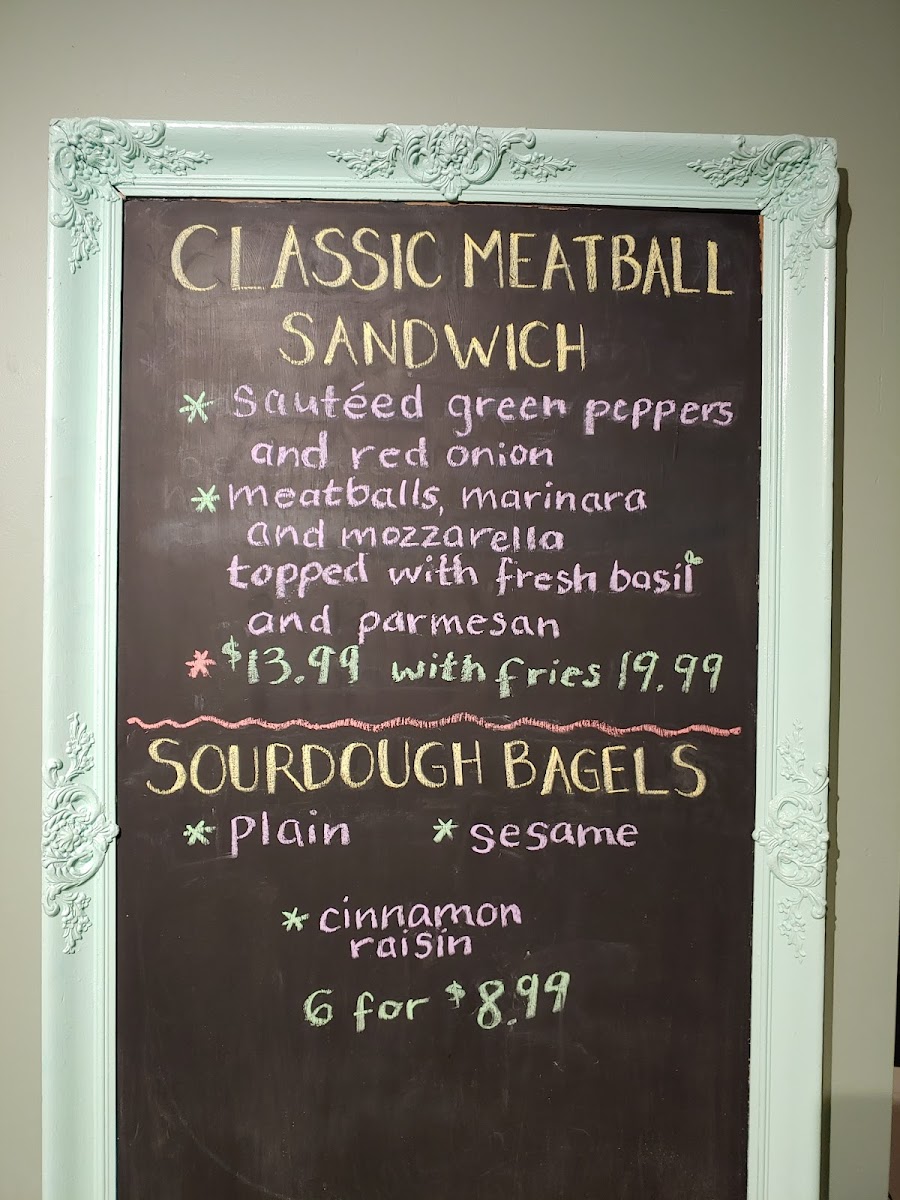 CLASSIC MEATBALL
SANDWICH
* Sautéed green peppers
and red onion
* meatballs, marinara
and mozzarella
topped with fresh basil
and parmesan
* $13.99 with fries 19.99
SOURDOUGH BAGELS
* Plain * sesame
* cinnamon
raisin
6 for $8.99